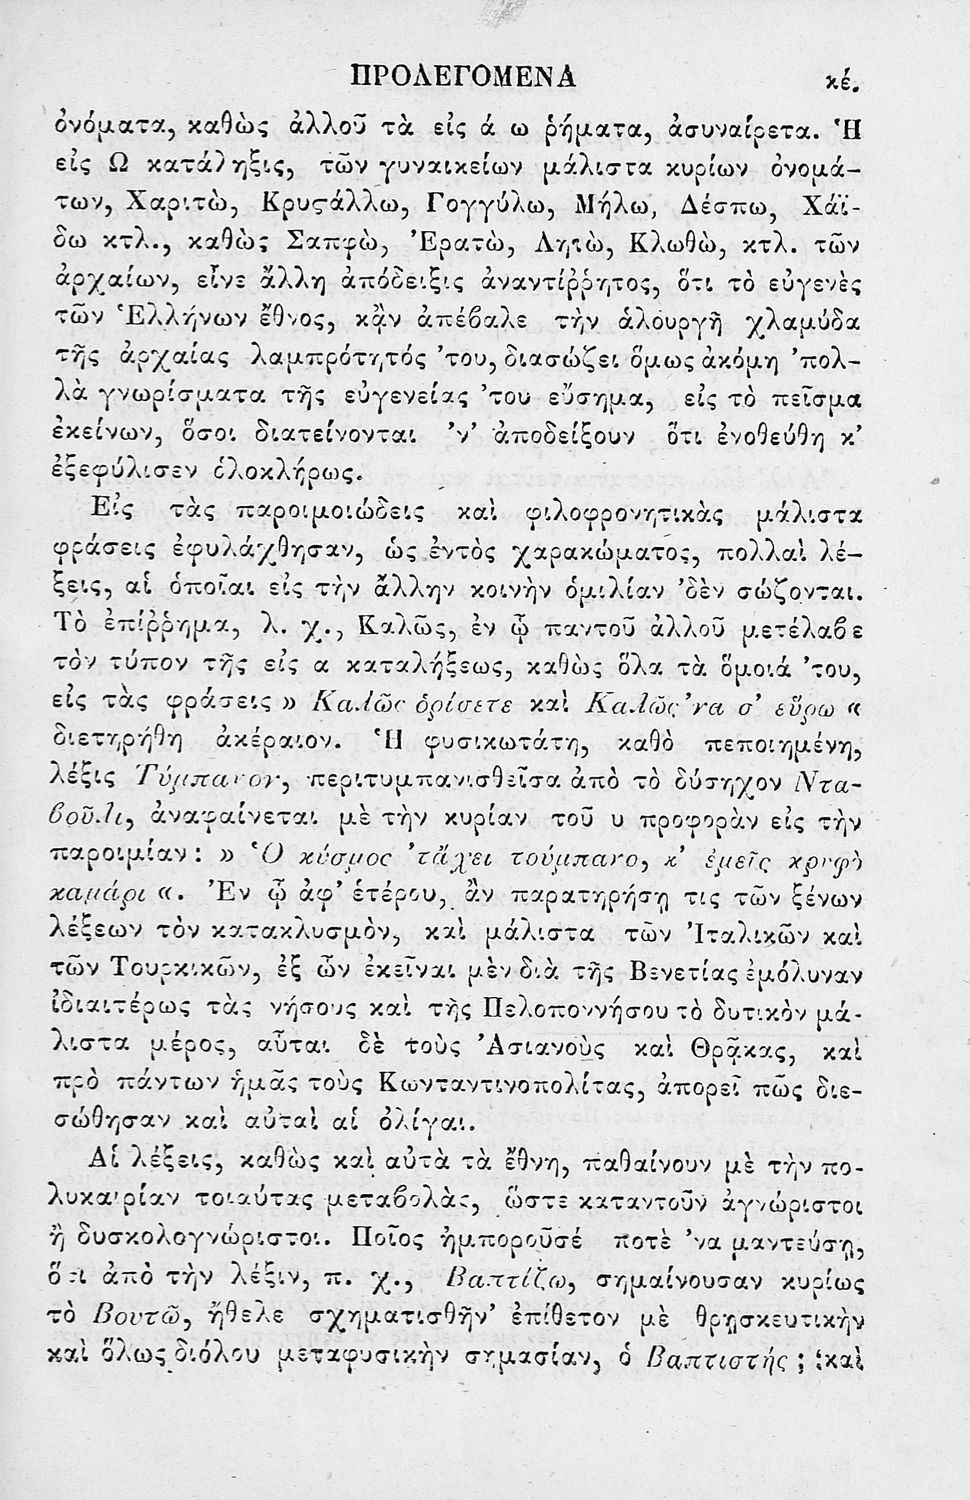 ΠΡΟΛΕΓΟΜΕΝΑ κέ.
ὀνόματα, καθὼς ἀλλοῦ τὰ εἰς ά ω ῥήματα, ἀσυναίρετα. Ἡ
εἰς Ω κατάληξις, τῶν γυναικείων μάλιστα κυρίων ὀνομά–
των, Χαριτὼ, Κρυστάλλω, Γογγύλω, Μήλω, Δέσπω, Χάϊ-
δω κτλ., καθὼς Σαπφὼ, Ἐρατὼ, Λητὼ, Κλωθὼ, κτλ. τῶν
ἀρχαίων, εἶνε ἄλλη ἀπόδειξις ἀναντίῤῥητος, ὅτι τὸ εὐγενὲς
τῶν Ἑλλήνων ἔθνος, κᾂν ἀπέβαλε τὴν ἁλουργῆ χλαμύδα
τῆς ἀρχαίας λαμπρότητός ᾿του, διασώζει ὅμως ἀκόμη ᾿πολ–
λὰ γνωρίσματα τῆς εὐγενείας ᾿του εὔσημα, εἰς τὸ πεῖσμα
ἐκείνων, ὅσοι διατείνονται ᾿ν᾿ ἀποδείξουν ὅτι ἐνοθεύθη κ᾿
ἐξεφύλισεν ὁλοκλήρως.
Εἰς τὰς παροιμοιώδεις καὶ φιλοφρονητικὰς μάλιστα
φράσεις ἐφυλάχθησαν, ὡς ἐντὸς χαρακώματος, πολλαὶ λέ–
ξεις, αἱ ὁποῖαι εἰς τὴν ἄλλην κοινὴν ὁμιλίαν ᾿δὲν σώζονται.
Τὸ ἐπίῤῥημα, λ. χ., Καλῶς, ἐν ᾧ παντοῦ ἀλλοῦ μετέλαβε
τὸν τύπον τῆς εἰς α καταλήξεως, καθὼς ὅλα τὰ ὅμοιά ᾿του,
εἰς τὰς φράσεις » Καλῶς ὁρίσετε καὶ Καλῶς ᾿να σ᾿ εὕρω «
διετηρήθη ἀκέραιον. Ἡ φυσικωτάτη, καθὸ πεποιημένη,
λέξις Τύμπανον, περιτυμπανισθεῖσα ἀπὸ τὸ δύσηχον Ντα-
βοῦλι, ἀναφαίνεται μὲ τὴν κυρίαν τοῦ υ προφορὰν εἰς τὴν
παροιμίαν: » Ὁ κόσμος ᾿τἄχει τούμπανο, κ᾿ ἐμεῖς κρυφὸ
καμάρι «. Ἐν ᾧ ἀφ᾿ ἑτέρου, ἂν παρατηρήσῃ τις τῶν ξένων
λέξεων τὸν κατακλυσμὸν, καὶ μάλιστα τῶν Ἰταλικῶν καὶ
τῶν Τουρκικῶν, ἐξ ὧν ἐκεῖναι μὲν διὰ τῆς Βενετίας ἐμόλυναν
ἰδιαιτέρως τὰς νήσους καὶ τῆς Πελοποννήσου τὸ δυτικὸν μά-
λιστα μέρος, αὗται δὲ τοὺς Ἀσιανοὺς καὶ Θρᾷκας, καὶ
πρὸ πάντων ἡμᾶς τοὺς Κωνταντινοπολίτας, ἀπορεῖ πῶς διε-
σώθησαν καὶ αὐταὶ αἱ ὀλίγαι.
Αἱ λέξεις, καθὼς καὶ αὐτὰ τὰ ἔθνη, παθαίνουν μὲ τὴν πο-
λυκαιρίαν τοιαύτας μεταβολὰς, ὥστε καταντοῦν ἀγνώριστοι
ἢ δυσκολογνώριστοι. Ποῖος ἠμποροῦσέ ποτὲ ᾿να μαντεύσῃ,
ὅτι ἀπὸ τὴν λέξιν, π. χ., Βαπτίζω, σημαίνουσαν κυρίως
τὸ Βουτῶ, ἤθελε σχηματισθῆν᾿ ἐπίθετον μὲ θρησκευτικὴν
καὶ ὅλως διόλου μεταφυσικὴν σημασίαν, ὁ Βαπτιστής ; καὶ